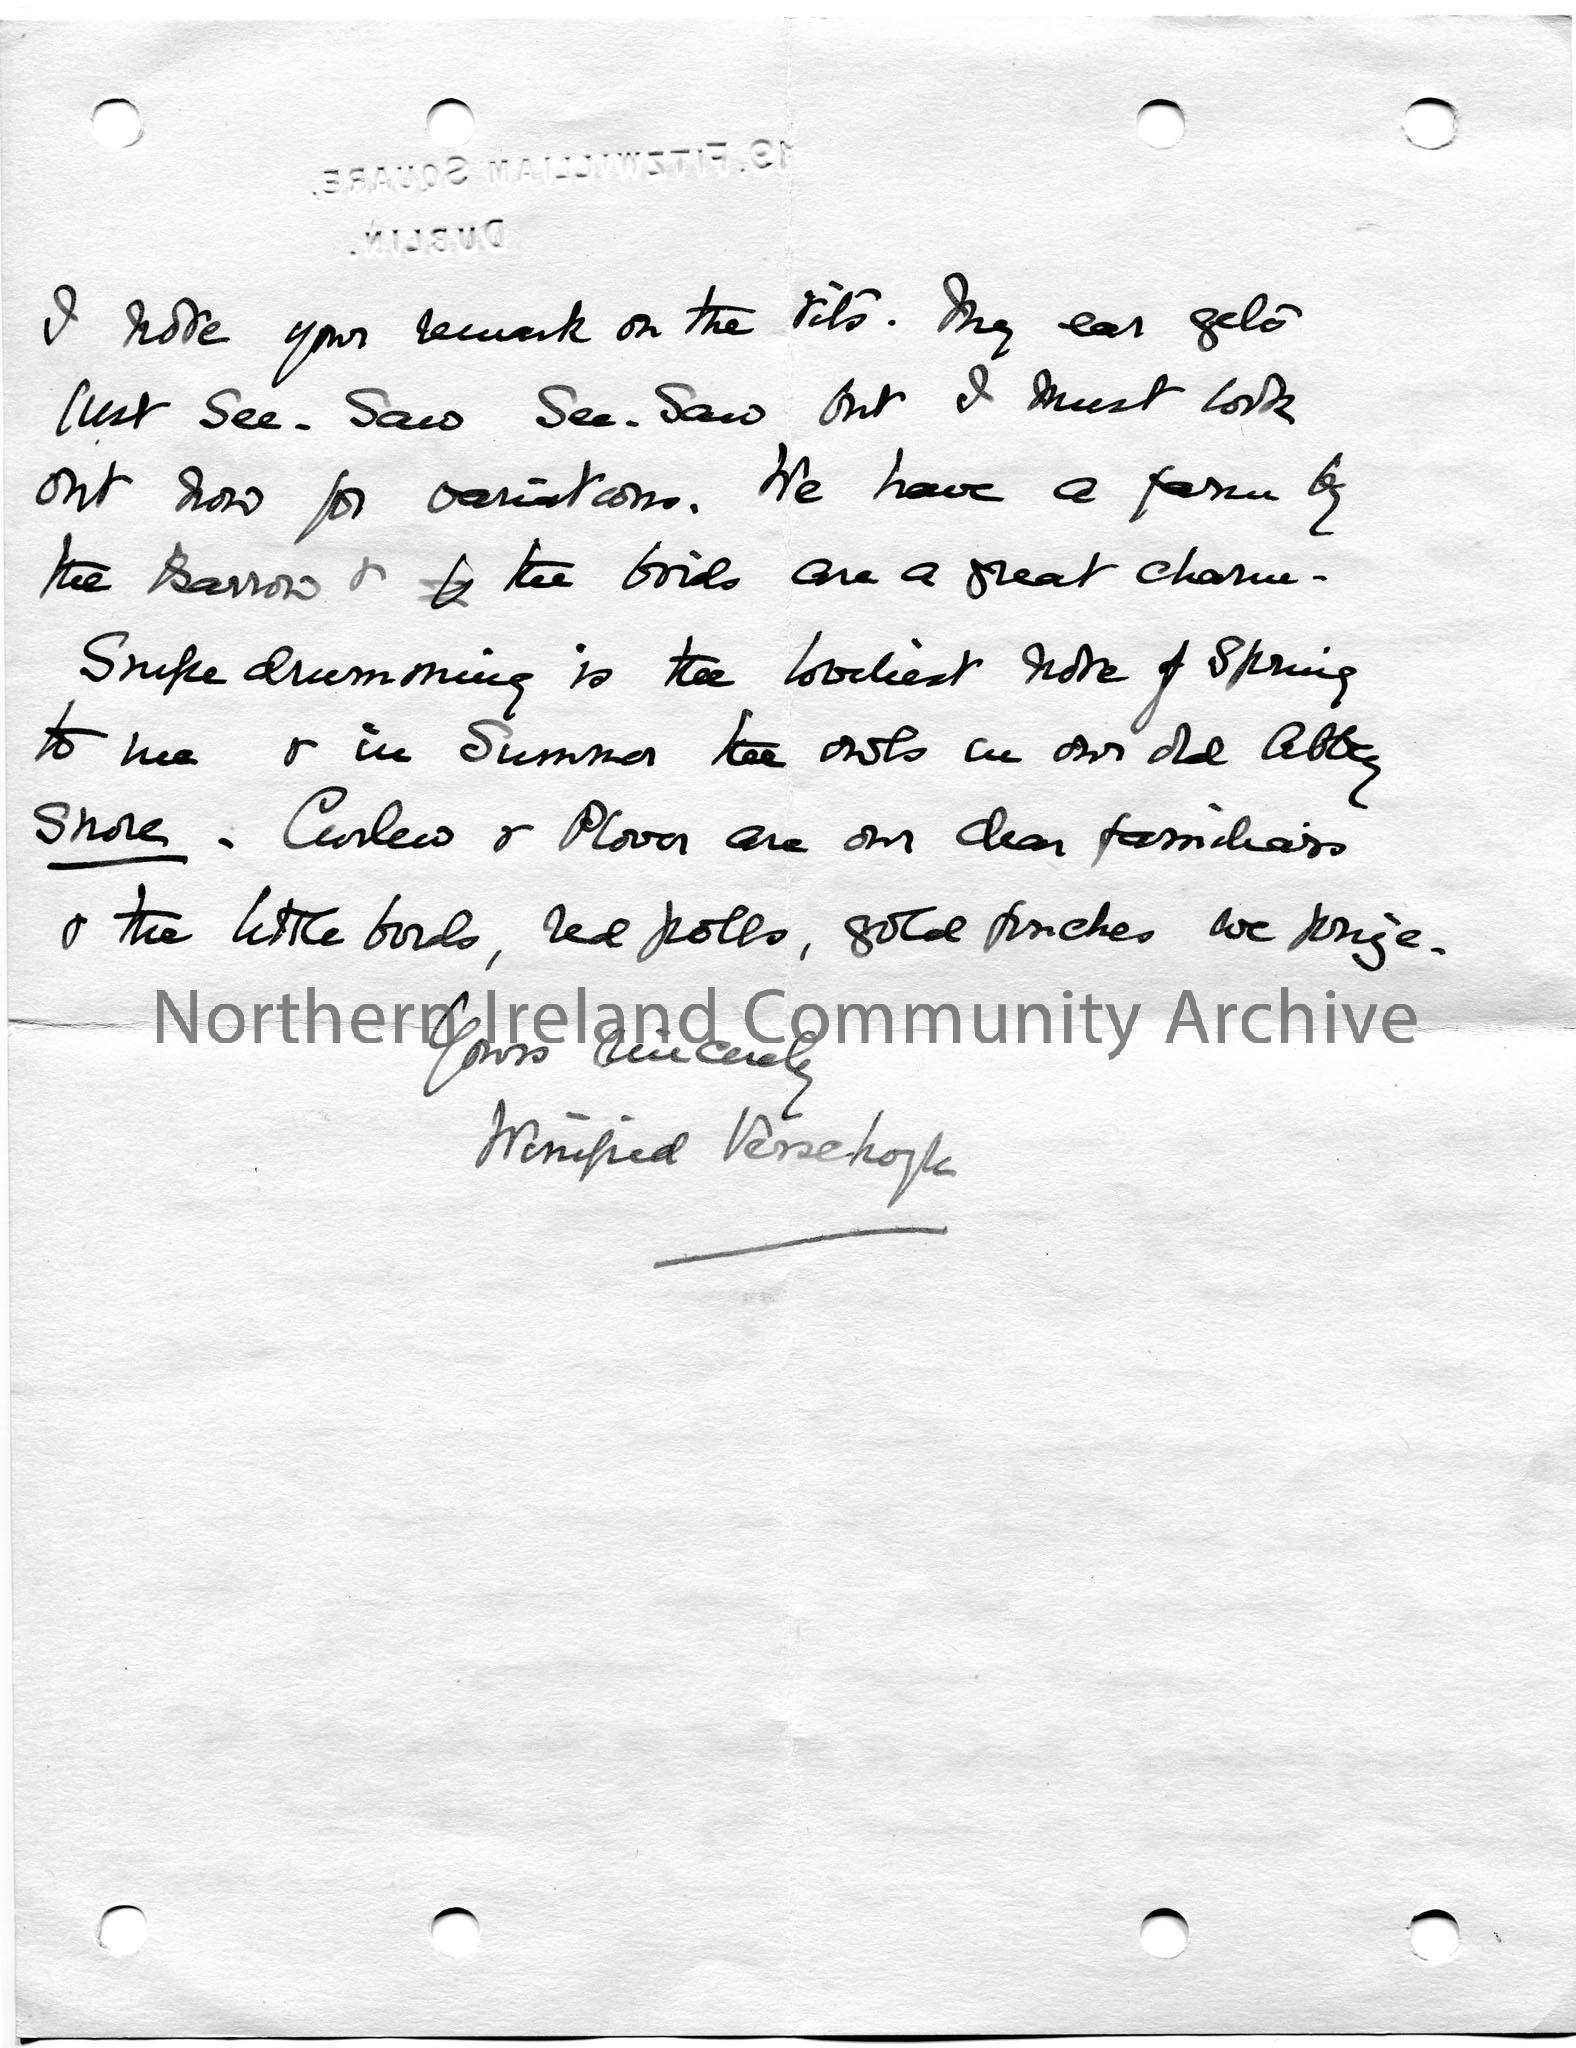 19. FITZWILLIAM SQUARE,
DUBLIN.
I note your remark on the tits. My ear gets
just See-Saw See-Saw but I must look
out now for variations. We have a farm by
the Barrow & the birds are a great charm-
Snipe drumming is the loveliest note of Spring
to me & in Summer the owls in our old Abbey
snore. Curlew & Plover are our dear familiars
& the little birds, red polls, gold finches we prize.
Northern Ireland Community Archive
Yours sincerely
Winifred Verschoyle